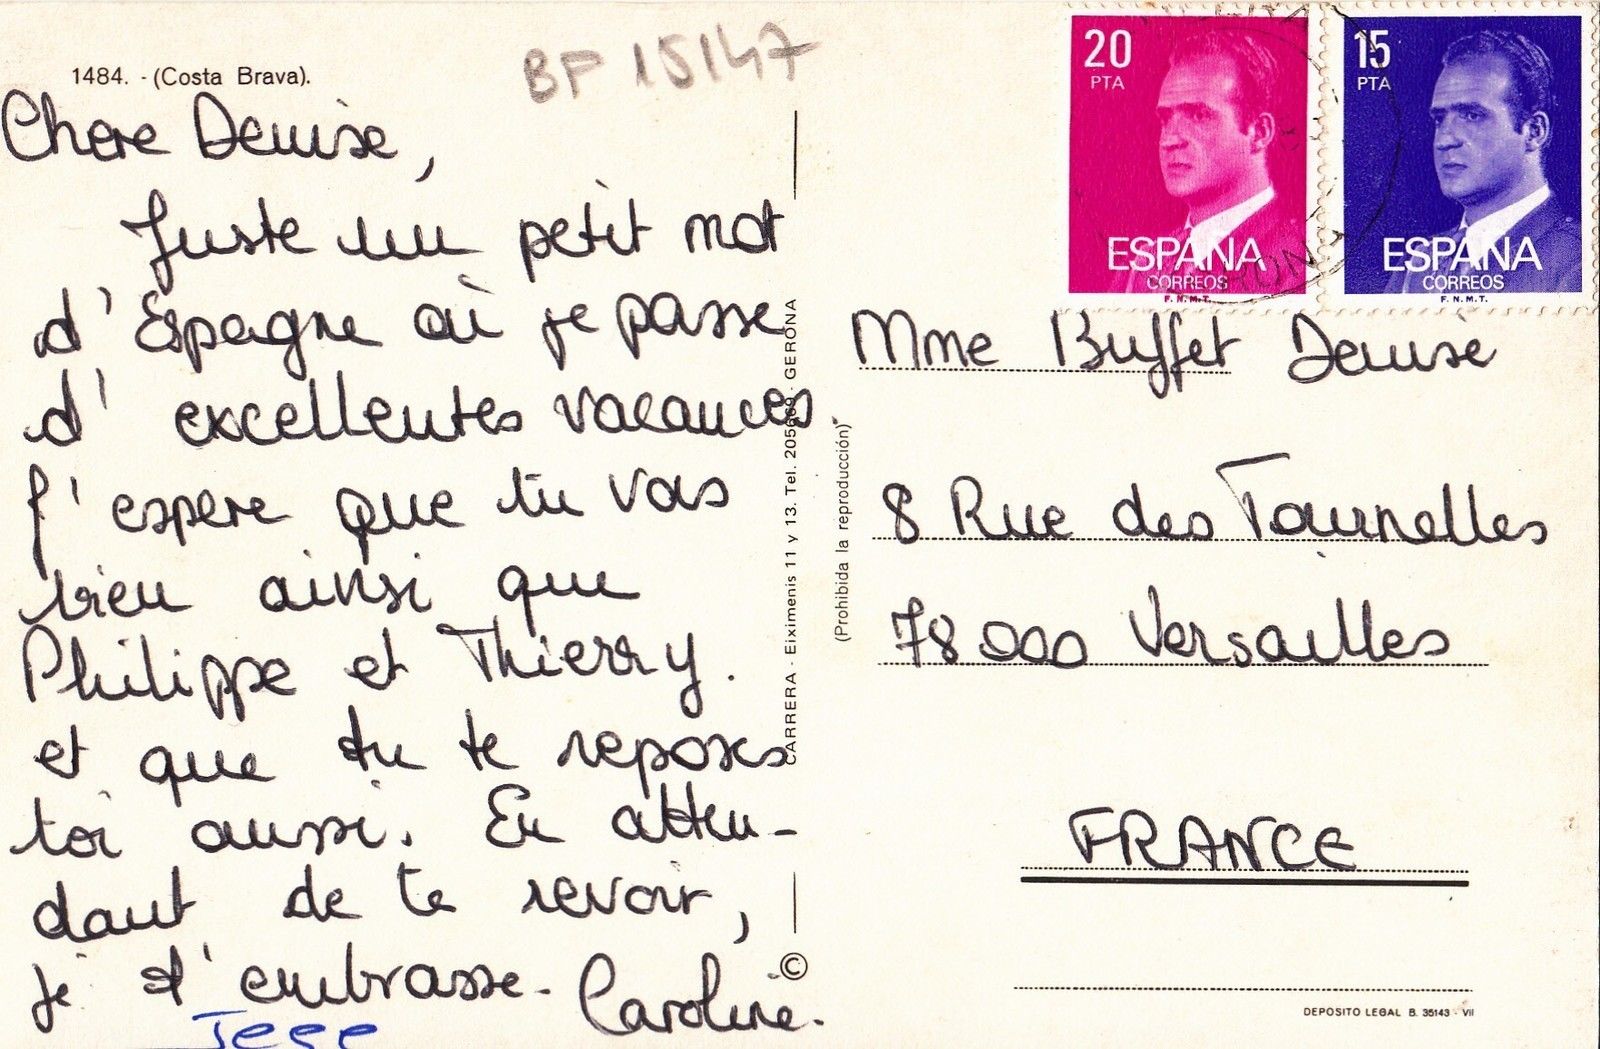 1484. - (Costa Brava).
BF 15147
Chere Denise,
Juste un petit mot
d'Espagne où je passe
d'excellentes vacances
J'espere que tu vas
bien ainsi que
Philippe et Thierry.
et que tu te reposes
toi aussi. En atten-
dant de te revoir,
je t'embrasse. Caroline.
CARRERA - Eiximenis 11 y 13. Tel. 205669 - GERONA
(Prohibida la reproducción)
©
20
PTA
ESPAÑA
CORREOS
F.N.M.T.
15
PTA
ESPAÑA
CORREOS
F.N.M.T.
Mme Buffet Denise
8 Rue des Tournelles
78000 Versailles
FRANCE
DEPOSITO LEGAL B. 35143 - VII